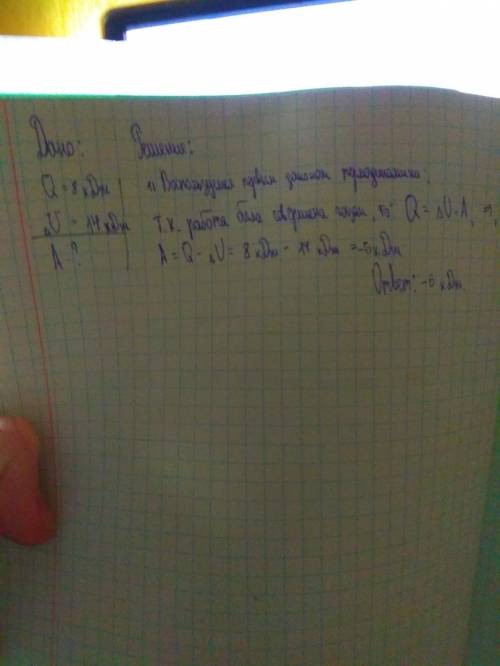 Дано: Решение:
Q = 8 кДж 1) Воспользуемся первым законом термодинамики:
ΔU = 14 кДж т.к. работа была совершена газом, то: Q = ΔU+A, =>,
A ? A = Q - ΔU = 8 кДж - 14 кДж = -6 кДж
Ответ: -6 кДж